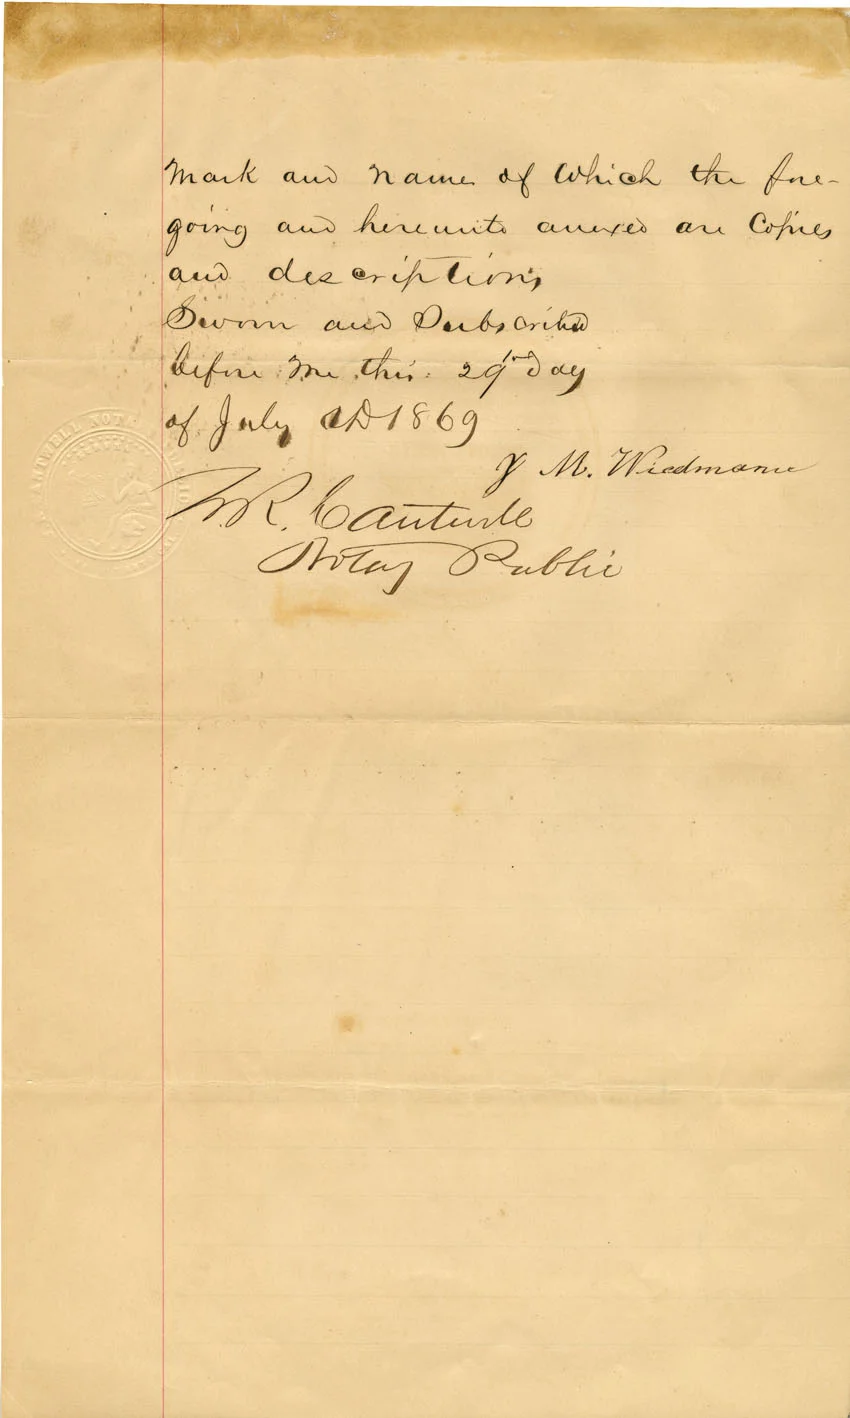 Mark and Name of Which the fore-
going and hereunto anexed are Copies
and descriptions
Sworn and Subscribed
before Me this 29th Day
of July AD 1869
J M. Wiedmann
W.R. Cantwell
Notay Public
ANTWELL NOT